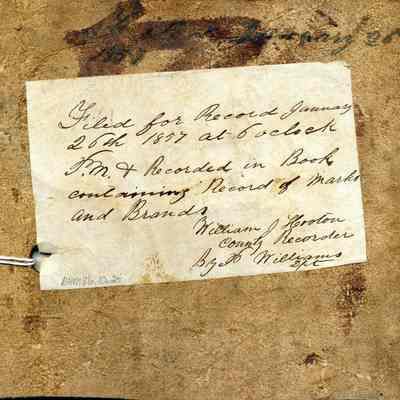 January 26
Filed for Record Januay
26th 1857 at 6 oclock
P.M. & Recorded in Book
containing Record of Marks
and Brands
William J Hooton
County Recorder
By Williams